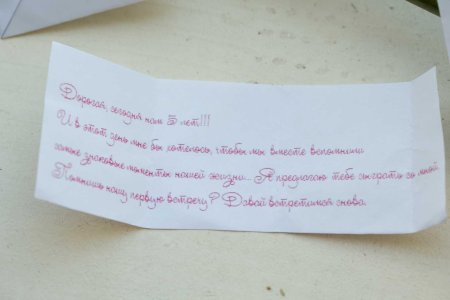 Дорогая, сегодня нам 5 лет!!!
И в этот день мне бы хотелось, чтобы мы вместе вспомнили
самые знаковые моменты нашей жизни... Я предлагаю тебе сыграть со мной.
Помнишь нашу первую встречу? Давай встретимся снова.